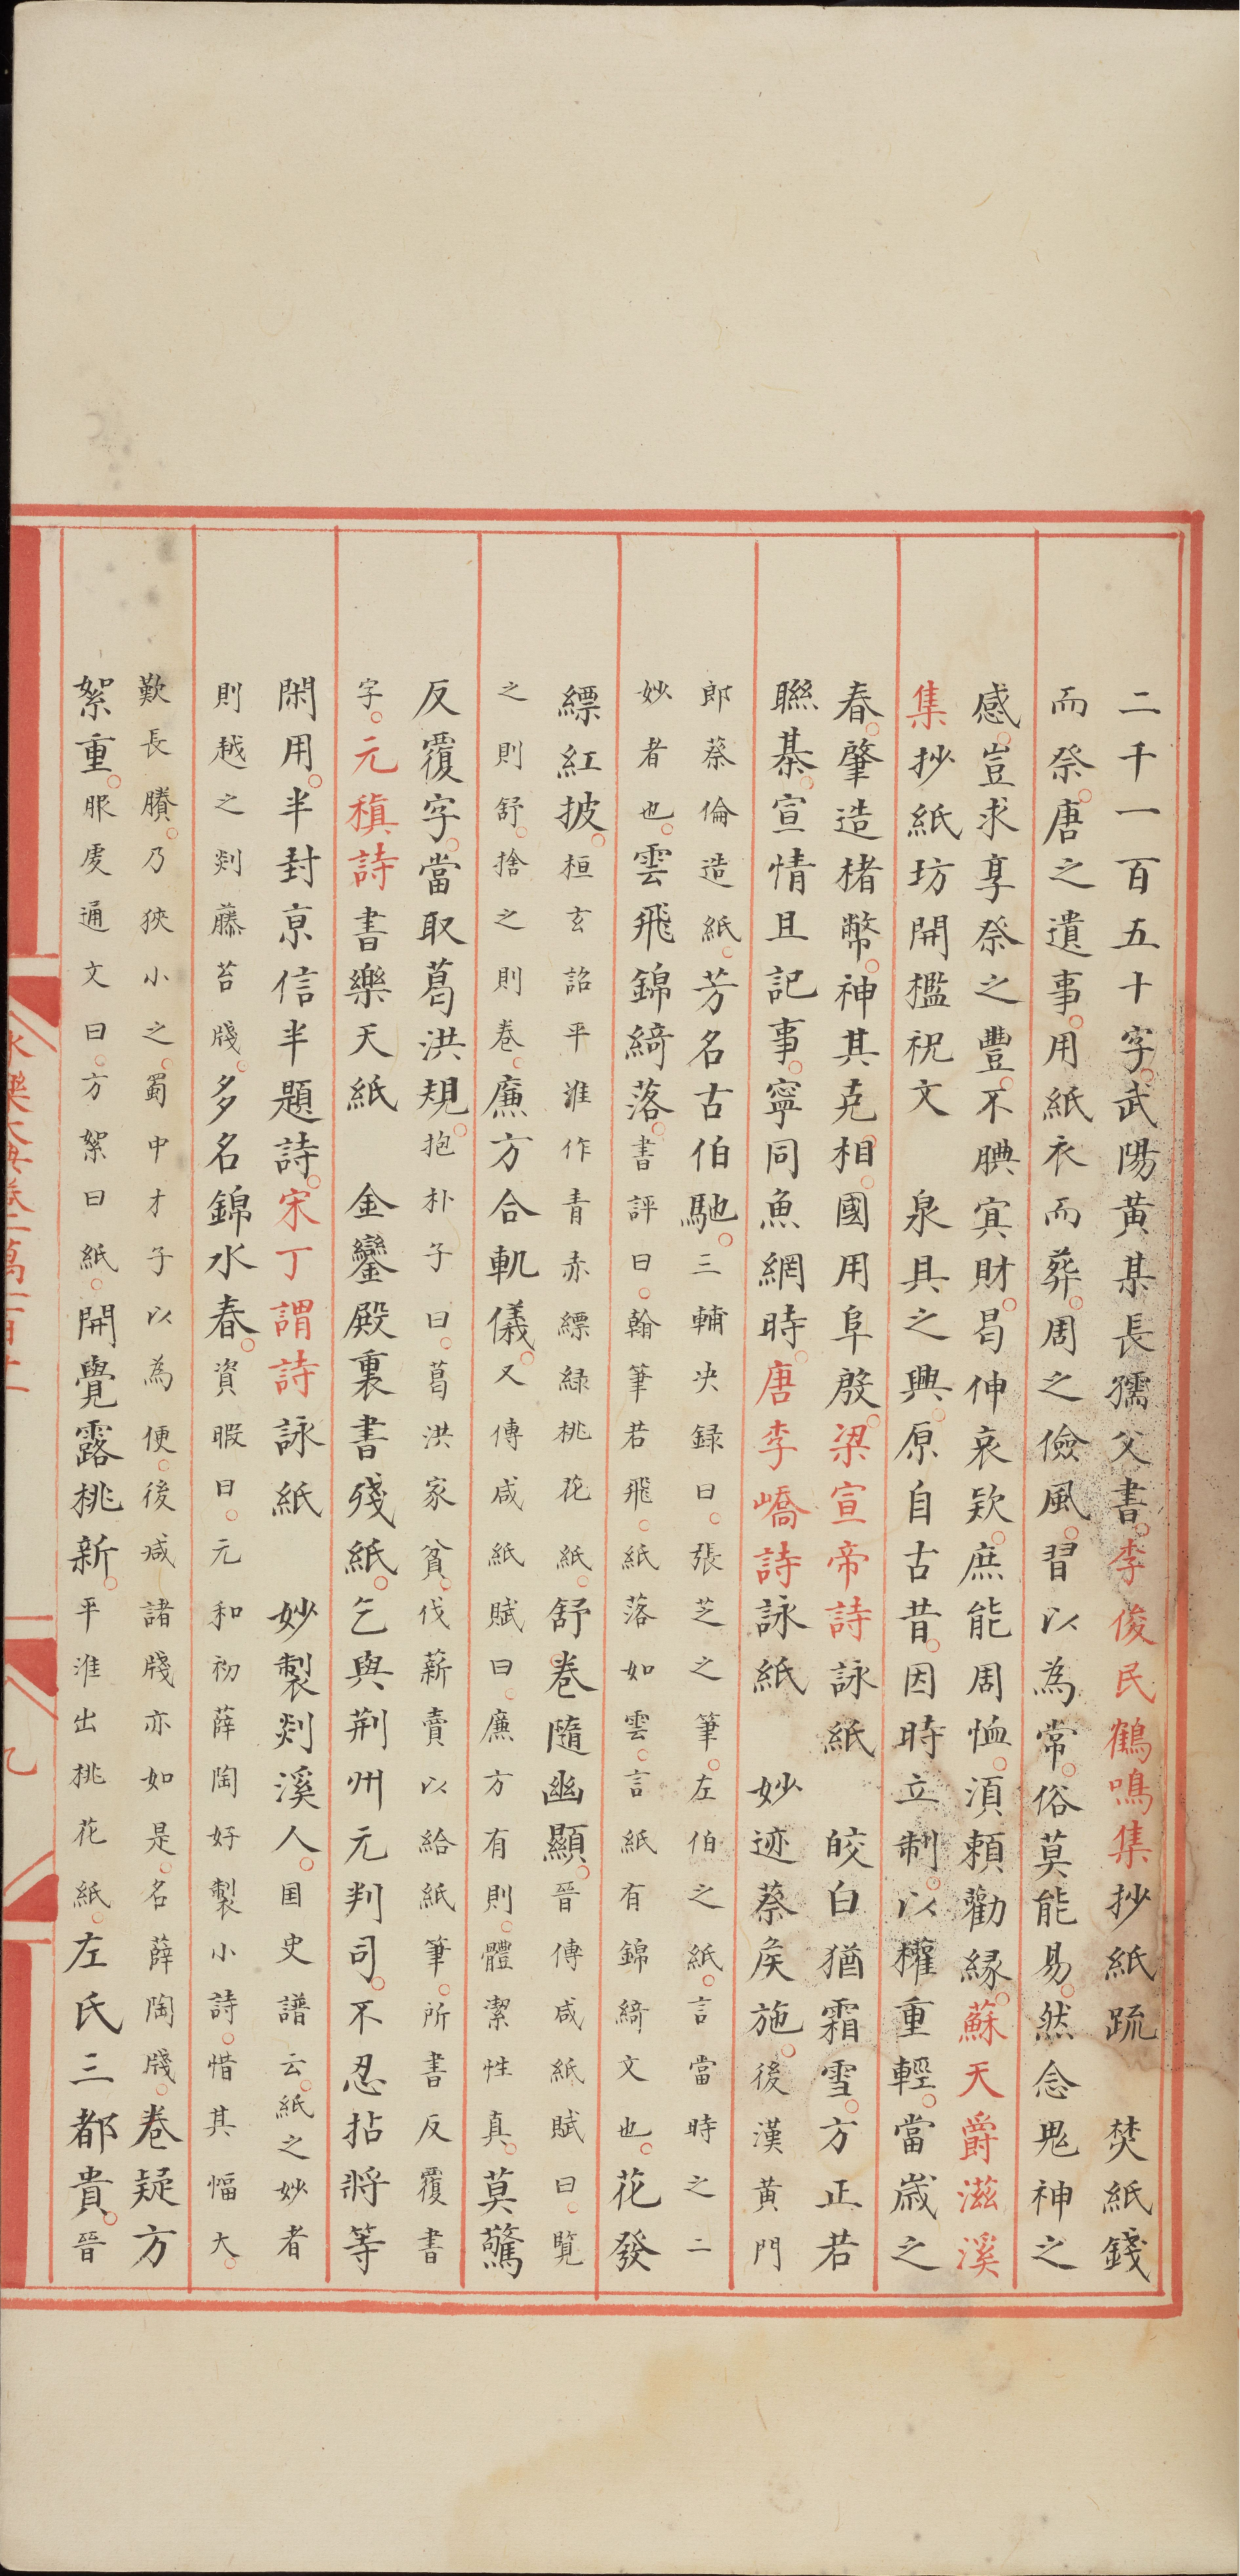 二千一百五十字。武陽黃某長孺父書。李俊民鶴鳴集抄紙疏　焚紙錢
而祭。唐之遺事。用紙衣而葬。周之儉風。習以為常。俗莫能易。然念鬼神之
感。豈求享祭之豐。不腆寘財。曷伸哀欵。庶能周恤。湏頼勸縁。蘇天爵滋溪
集抄紙坊開檻祝文　泉具之興。原自古昔。因時立制。以權重輕。當歲之
春。肇造楮幣。神其克相。國用阜殷。梁宣帝詩詠紙　皎白猶霜雪。方正若
聮棊。宣情且記事。寧同魚網時。唐李嶠詩詠紙　妙迹蔡矦施。後漢黃門
郎蔡倫造紙。芳名古伯馳。三輔决録曰。張芝之筆。左伯之紙。言當時之二
妙者也。雲飛錦綺落。書評曰。翰筆若飛。紙落如雲。言紙有錦綺文也。花發
縹紅披。桓玄詔平淮作青赤縹緑桃花紙。舒卷隨幽顯。晉傅咸紙賦曰。覽
之則舒。捨之則卷。廉方合軌儀。又傅咸紙賦曰。廉方有則。體潔性真。莫驚
反覆字。當取葛洪規。抱朴子曰。葛洪家貧。伐薪賣以給紙筆。所書反覆書
字。元稹詩書樂天紙　金鑾殿裏書殘紙。乞與荆州元判司。不忍拈將等
閑用。半封京信半題詩。宋丁謂詩詠紙　妙製剡溪人。国史譜云。紙之妙者
則越之剡藤苔牋。多名錦水春。資暇曰。元和初薛陶好製小詩。惜其幅大。
歎長賸。乃狹小之。蜀中才子以為便。後减諸牋亦如是。名薛陶牋。卷疑方
絮重。服虔通文曰。方絮曰紙。開覺露桃新。平淮出桃花紙。左氏三都貴。晉
永樂大典卷一萬一百十